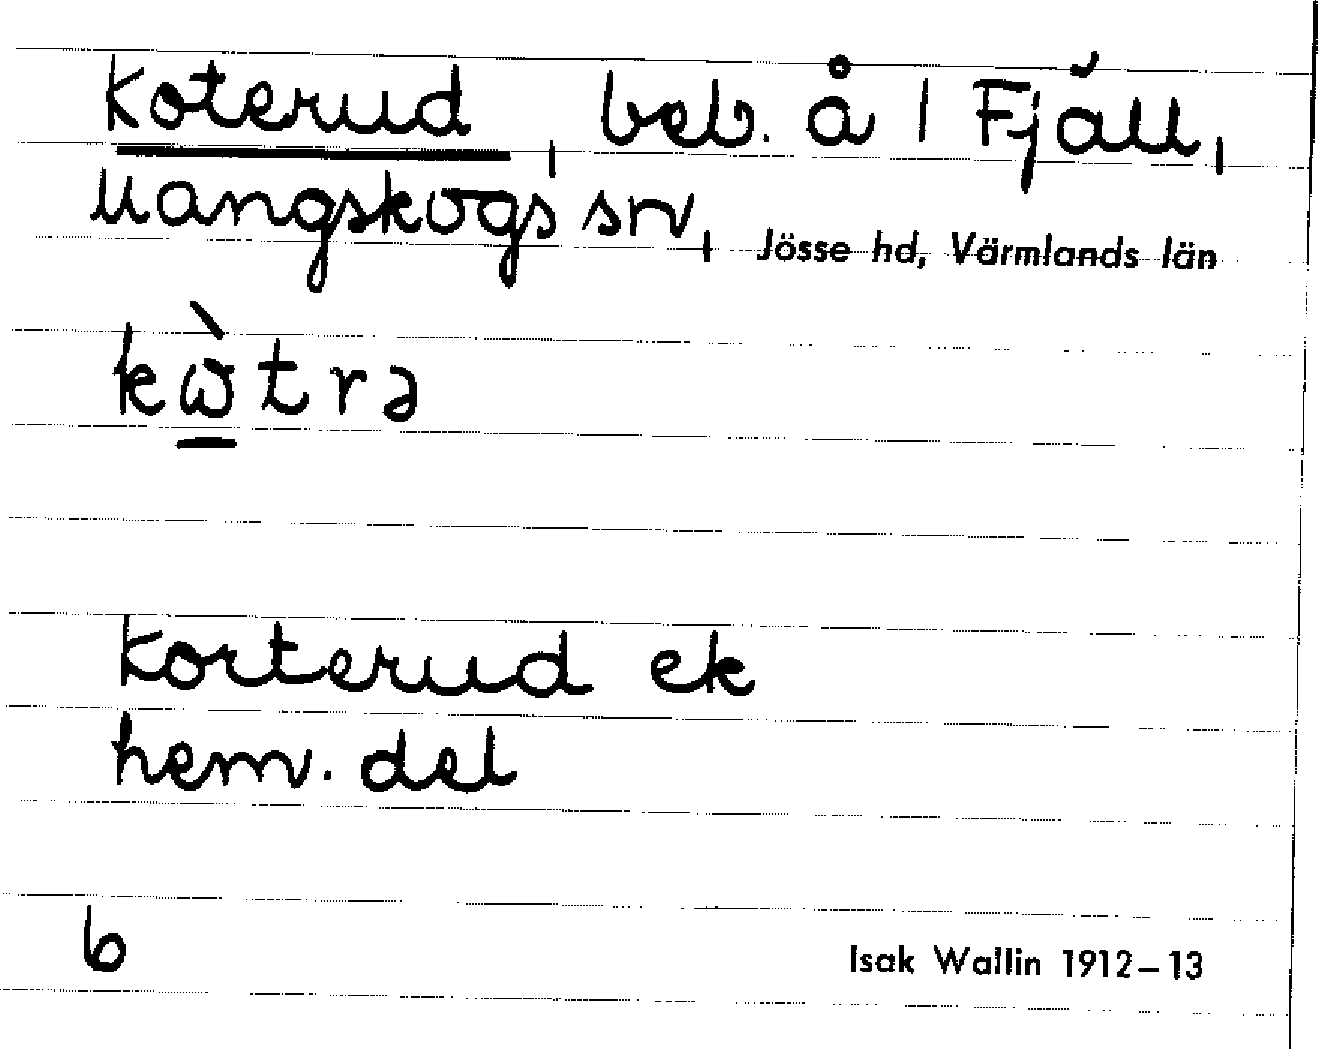 Koterud, beb. å 1 Fjäll,
Mangskogs sn, Jösse hd, Värmlands län
kὼ̲trə
Korterud ek
hem. del
6
Isak Wallin 1912–13